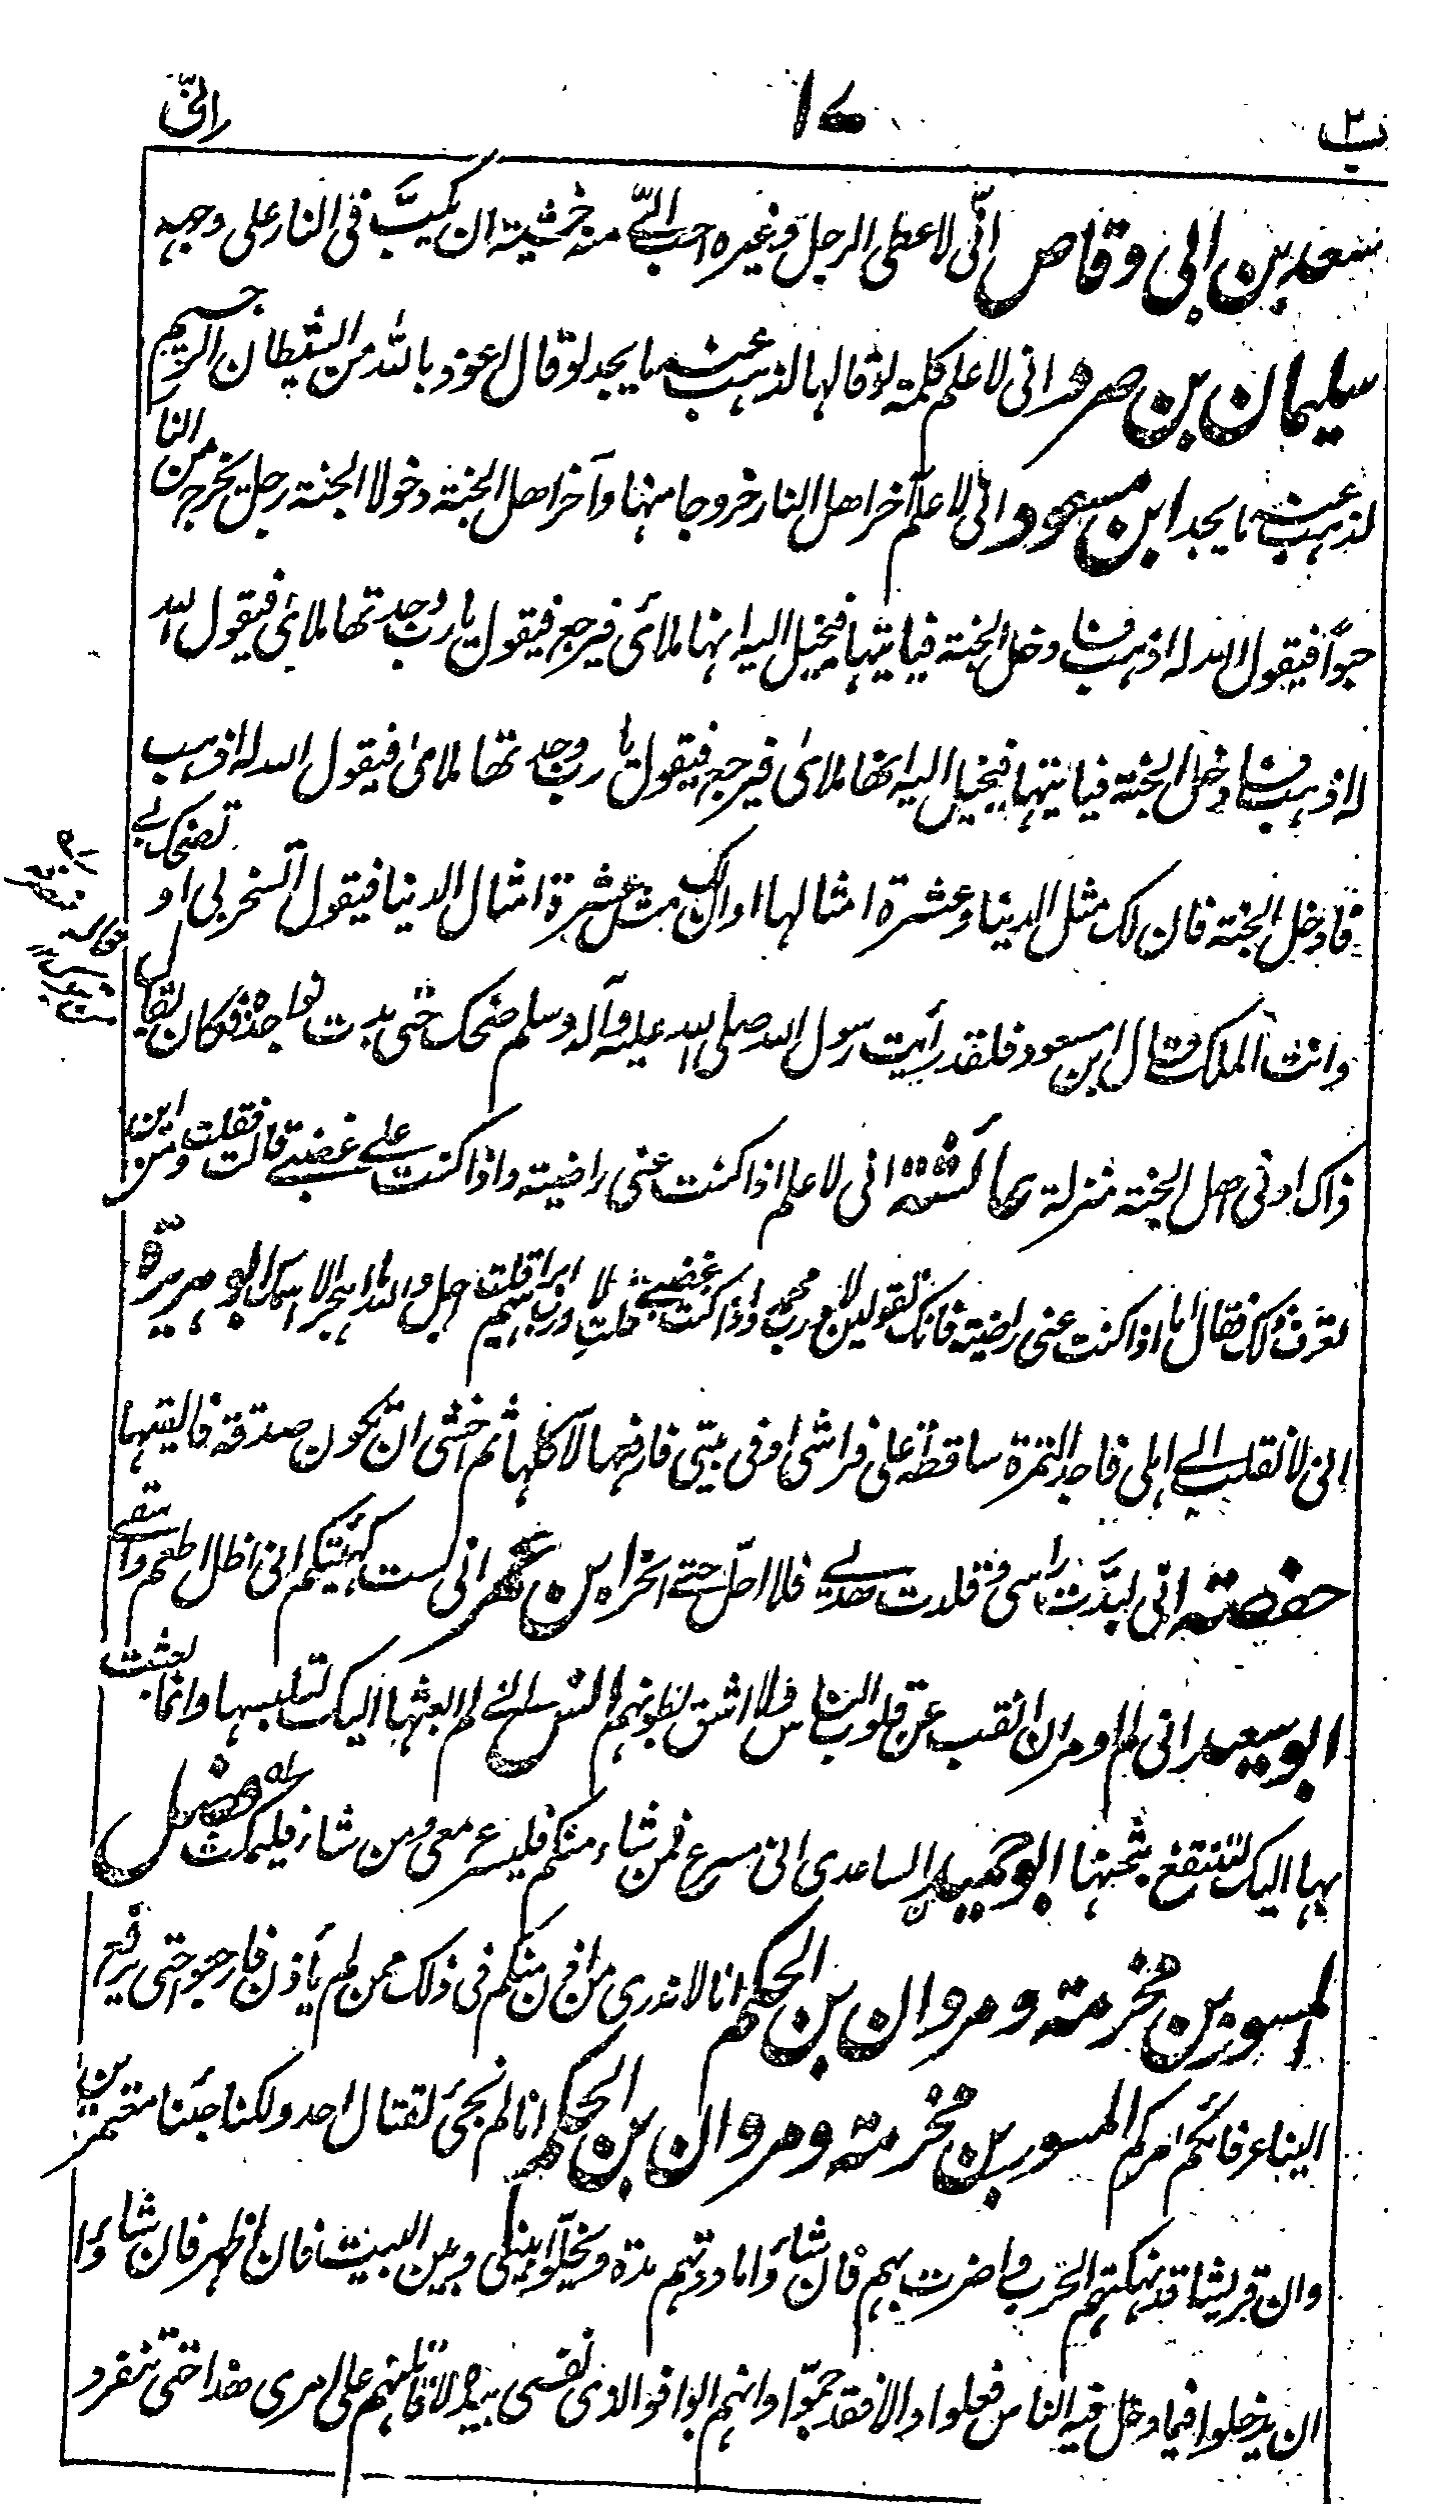 انی
سعد بن ابی وقاص انی لاعطی الرجل وغیره احب الیّ منه خشیة ان یکبَّ فی النار علی وجهه
سلیمان بن صرد انی لاعلم کلمة لو قالها لذهب عنه ما یجد لو قال اعوذ بالله من الشیطان الرجیم
لذهب عنه ما یجد ابن مسعود انی لا علم آخر اهل النار خروجا منها وآخر اهل الجنة دخولا الجنة رجل یخرج من النار
حبوًا فیقول الله له اذهب فادخل الجنة فیاتیها فیخیل الیه انها ملائ فیرجع فیقول یا رب وجدتها ملائ فیقول الله
له اذهب فادخل الجنة فیاتیها فیخیل الیه انها ملائ فیرجع فیقول یا رب وجدتها ملائ فیقول الله له اذهب
فادخل الجنة فان لک مثل الدنیا وعشرة امثالها او ان لک مثل عشرة امثال الدنیا فیقول أتسخر بی او تضحک بی
وانت الملک قال ابن مسعود فلقد رأیت رسول الله صلی الله علیه وآله وسلم ضحک حتی بدت نواجذه فکان یقال
ذاک ادنی اهل الجنة منزلة عائشة انی لا علم اذا کنت عنی راضیة واذا کنت علی غضبی قالت فقلت ومن این
تعرف ذلک فقال اما اذا کنت عنی راضیة فانک تقولین لا ورب محمد واذا کنت غضبی قلت لا ورب ابراهیم قلت اجل والله ما اهجر الا اسمک ابو هریرة
انی لانقلب الی اهلی فاجد التمرة ساقطة علی فراشی او فی بیتی فارفعها لآکلها ثم اخشی ان تکون صدقة فالقیها
حفصة انی لبَّدت راسی وقلدت هدیی فلا احل حتی انحر ابن عمر انی لست کهیئتکم انی اظل اطعم واسقی
ابو سعید انی لم اومر ان انقب عن قلوب الناس ولا اشق بطونهم انس انی لم ابعثها الیک لتلبسها وانما بعثت
بها الیک لتنتفع بثمنها ابو حمید الساعدی انی مسرع فمن شاء منکم فلیسرع معی ومن شاء فلیمکث فصل
المسور بن مخرمة ومروان بن الحکم انا لا ندری من اذن منکم فی ذلک ممن لم یأذن فارجعوا حتی یرفع
الینا عرفاؤکم امرکم المسور بن مخرمة ومروان بن الحکم انا لم نجئ لقتال احد ولکنا جئنا معتمرین
وان قریشا قد نهکتهم الحرب واضرت بهم فان شاؤا ماددتهم مدة ویخلوا بینی وبین البیت فان اظهر فان شاؤا
ان یدخلوا فیما دخل فیه الناس فعلوا والا فقد جمّوا وان هم ابوا فوالذی نفسی بیده لاقاتلنهم علی امری هذا حتی تنفرد